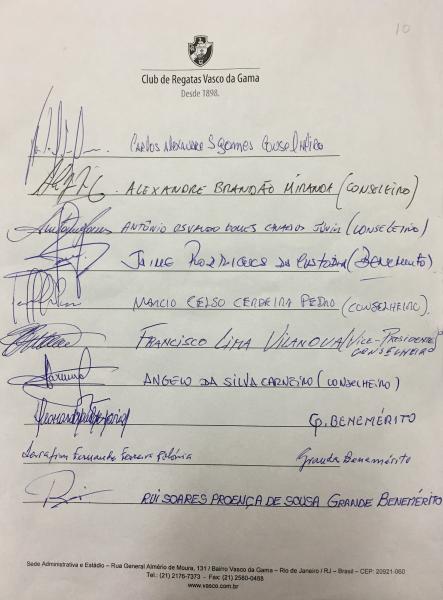 10
Club de Regatas Vasco da Gama
Desde 1898.
CARLOS ALEXANDRE S GOMES CONSELHEIRO
ALEXANDRE BRANDÃO MIRANDA (CONSELEIRO)
ANTÔNIO OSVALDO GOMES JÚNIOR (CONSELEIRO)
JAIME RODRIGUES DA (BENEMÉRITO)
MARCIO CELSO CERDEIRA PEDRO (CONSELHEIRO)
FRANCISCO LIMA VILANOVA (VICE-PRESIDENTE
CONSELHEIRO
ANGELO DA SILVA CARNEIRO (CONSELHEIRO)
G. BENEMÉRITO
Serafim Fernando Ferreira Grande Benemérito
RUI SOARES PROENÇA DE SOUSA GRANDE BENEMÉRITO
Sede Administrativa e Estádio – Rua General Almério de Moura, 131 / Bairro Vasco da Gama – Rio de Janeiro / RJ – Brasil – CEP: 20921-060
Tel.: (21) 2176-7373 – Fax: (21) 2580-0488
www.vasco.com.br